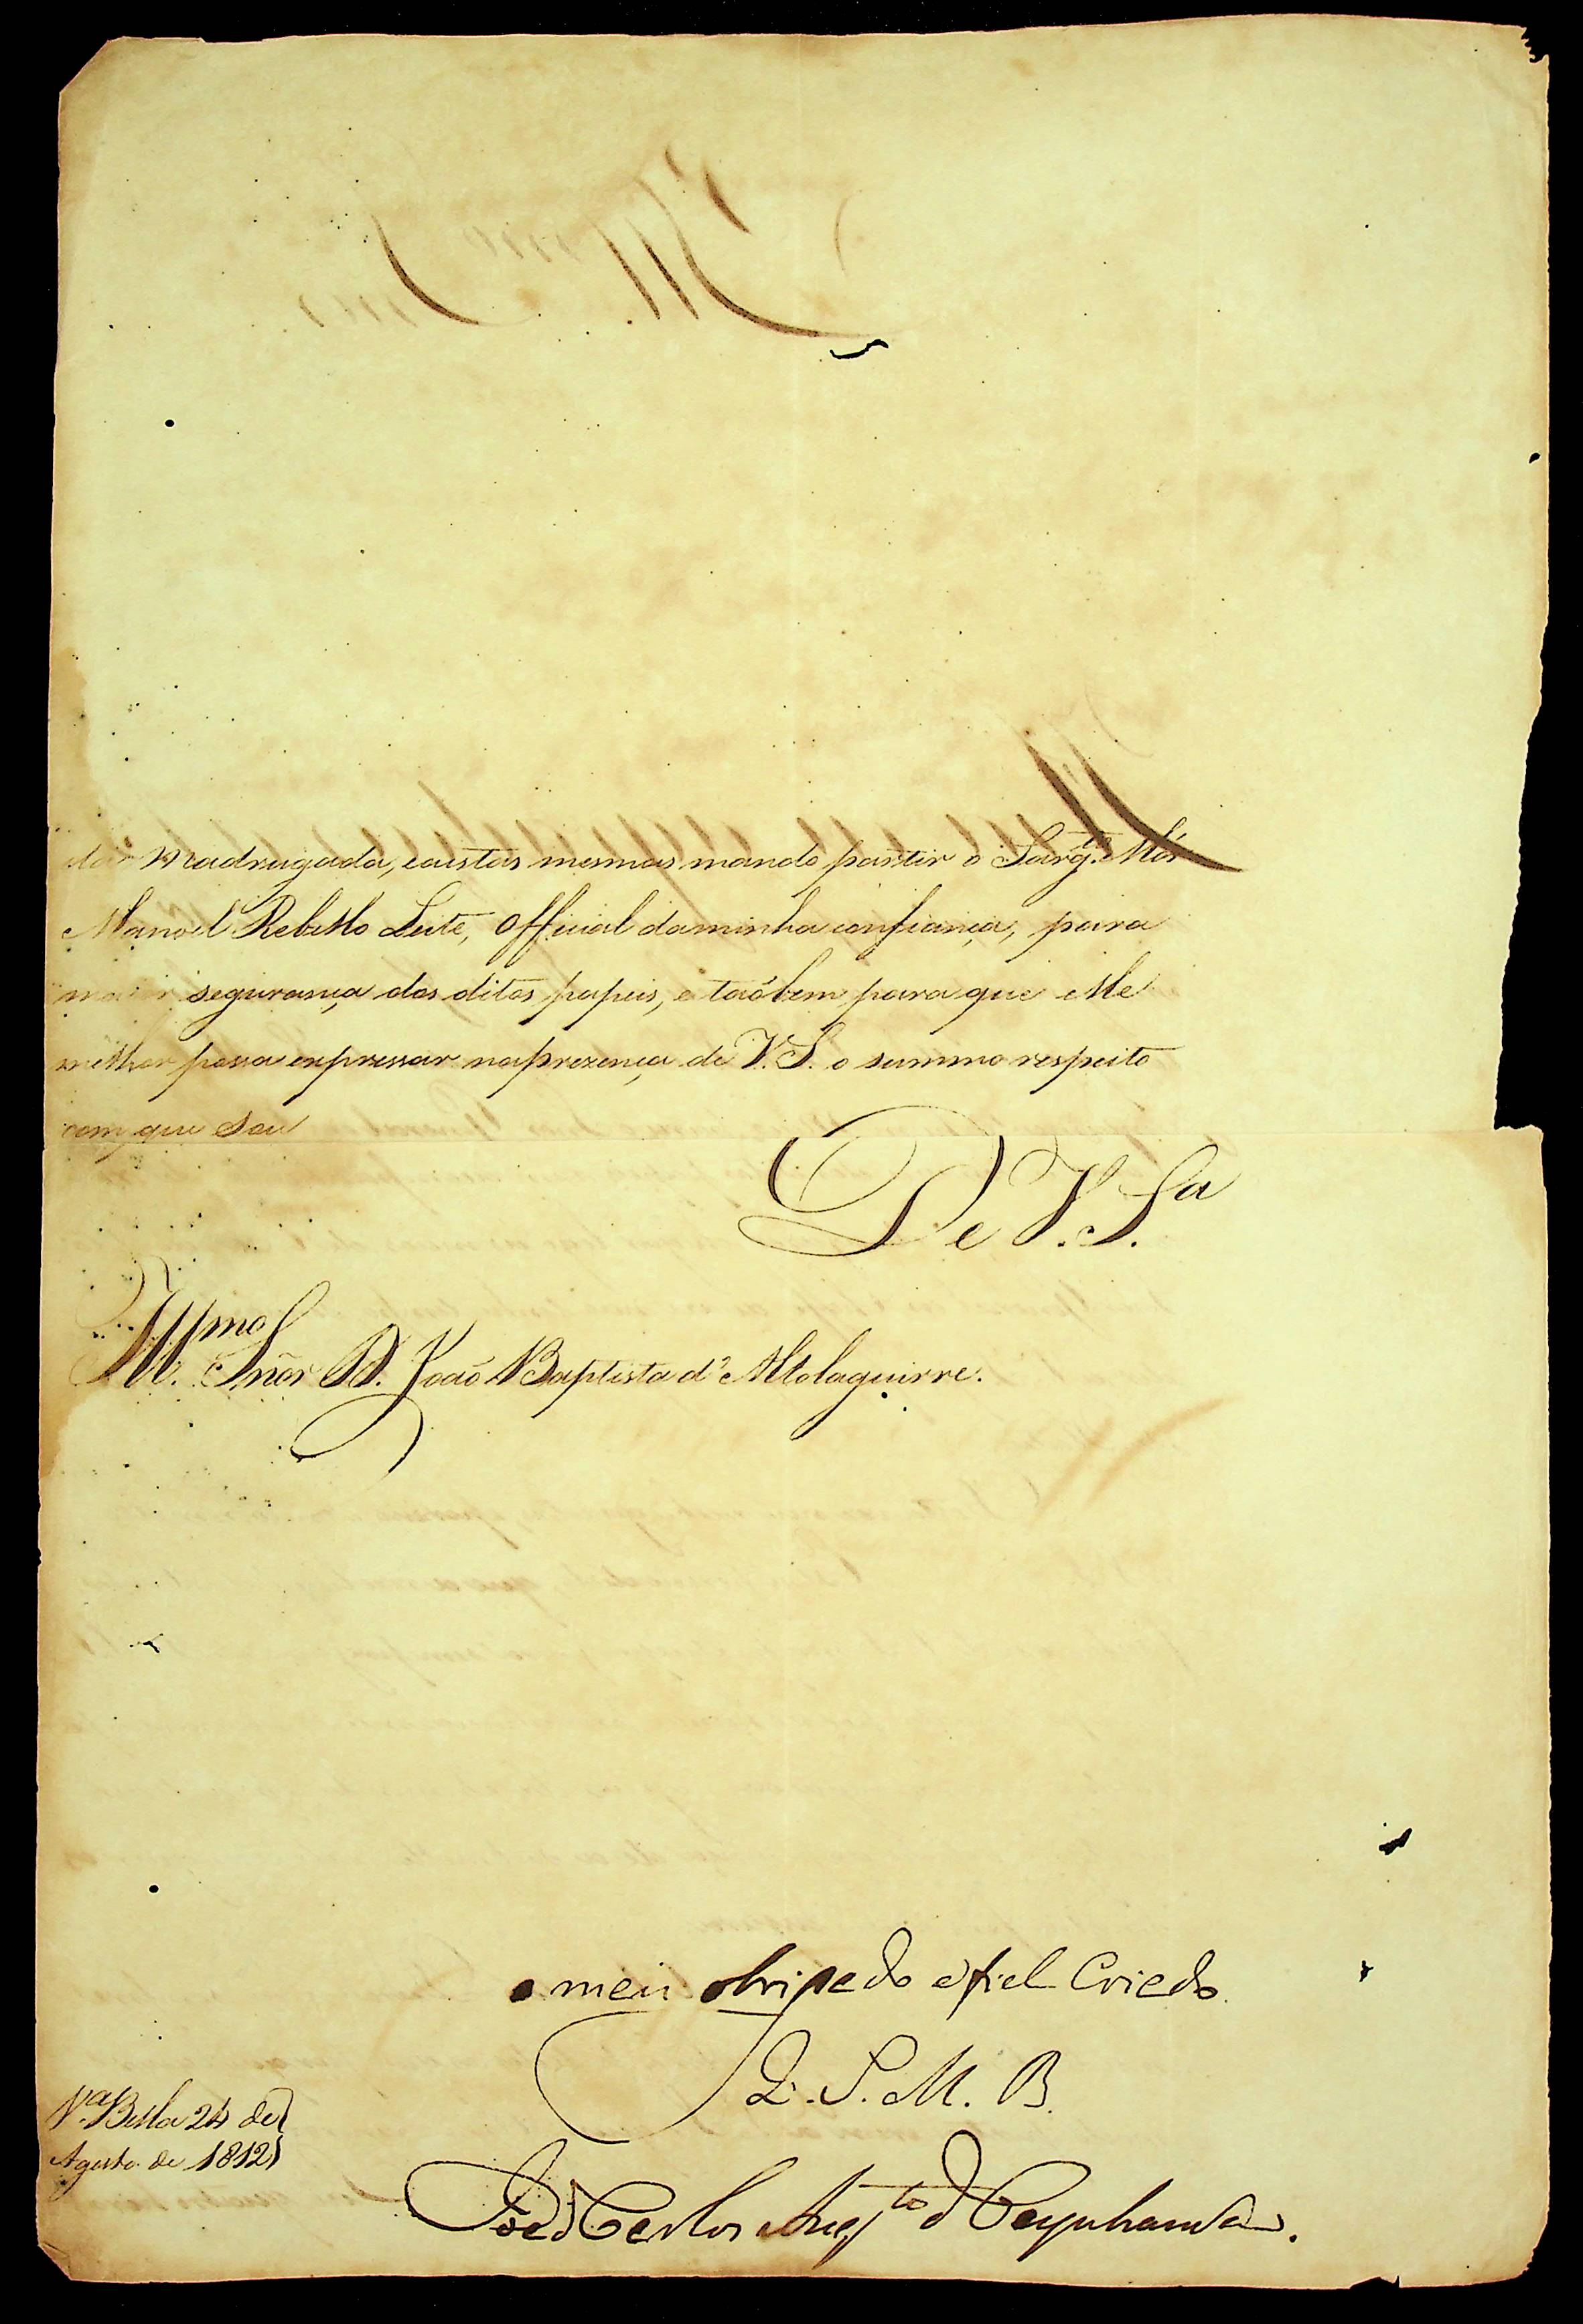 da madrugada, e a estas mesmas mando partir o Sargto. Mór
Manoel Rebello Leite, Official da minha confiança, para
maior segurança dos ditos papeis, e taõbem para que elle
milhor possa expressar na prezença de V. S. o summo respeito
com que sou
De V. Sa.
Illmo. Snór D. Joaõ Baptista d'Altolaguirre.
o meu obrigado e fiel Criado
Q. S. M. B.
Va. Bella 24 de
Agosto de 1812
João Carlos Augto. d'Oeynhausen.